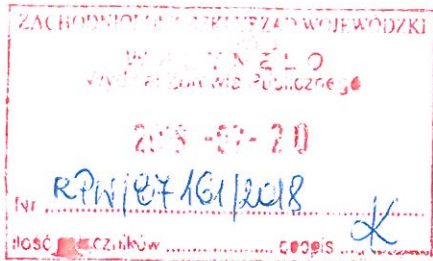 ZACHODNIOPOMORSKI URZĄD WOJEWÓDZKI
WPŁYNĘŁO
Wydział Zdrowia Publicznego
2018 -07- 20
Nr RPW/87161/2018
Ilość załączników podpis